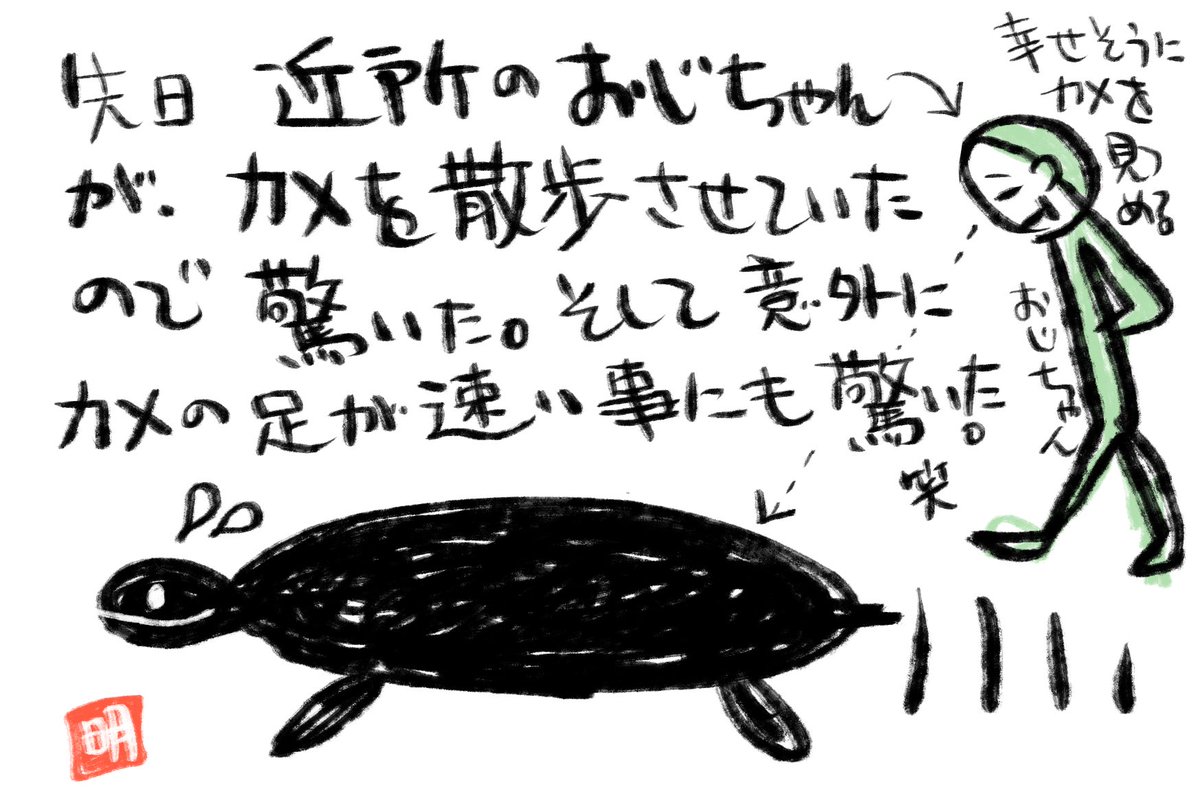 先日 近所のおじちゃん
が、カメを散歩させていた
ので驚いた。そして意外に
カメの足が速い事にも驚いた。
笑
幸せそうに
カメを
見つ
める
おじちゃん
明